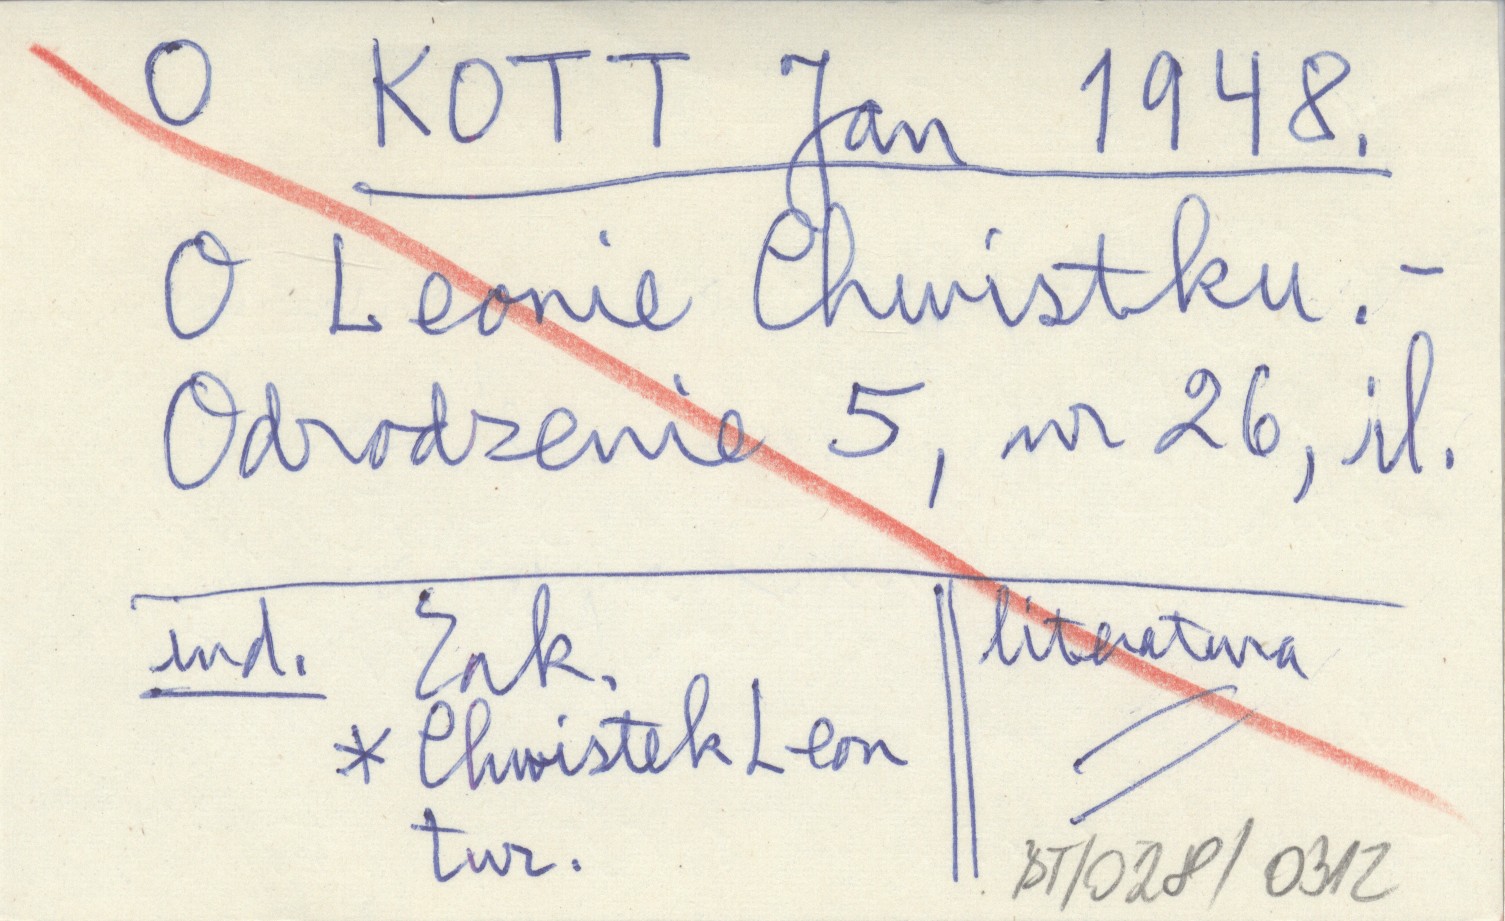 O KOTT Jan 1948.
O Leonie Chwistku. -
Odrodzenie 5, nr 26, il.
ind. Zak.
* Chwistek Leon
twr.
literatura
BT/028/0312